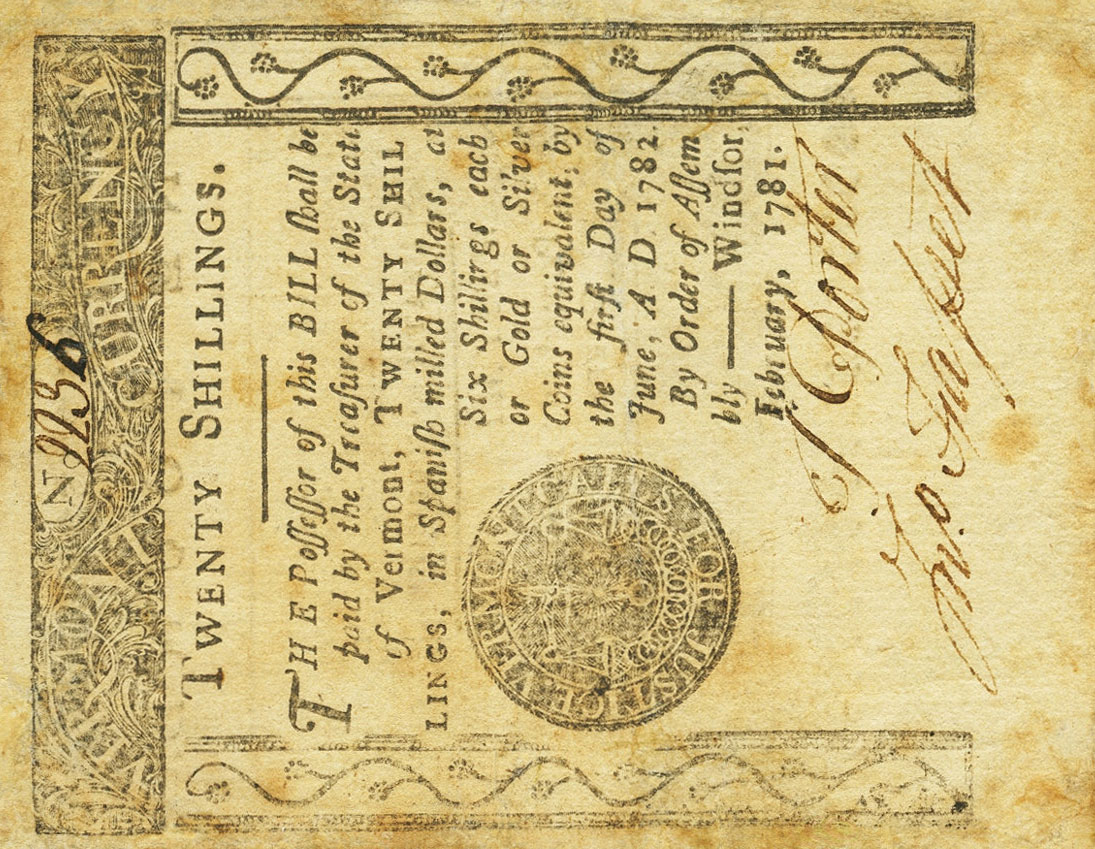 VERMONT CURRENCY
No 2236
TWENTY SHILLINGS.
THE Poſſeſſor of this BILL ſhall be
paid by the Treaſurer of the State
of Vermont, TWENTY SHIL
LINGS, in Spaniſh milled Dollars, at
Six Shillings each
or Gold or Silver
Coins equivalent, by
the firſt Day of
June, A. D. 1782.
By Order of Aſſem
bly —— Windſor,
February, 1781.
VERMONT CALLS FOR JUSTICE
T Porter
Jno Faſsett